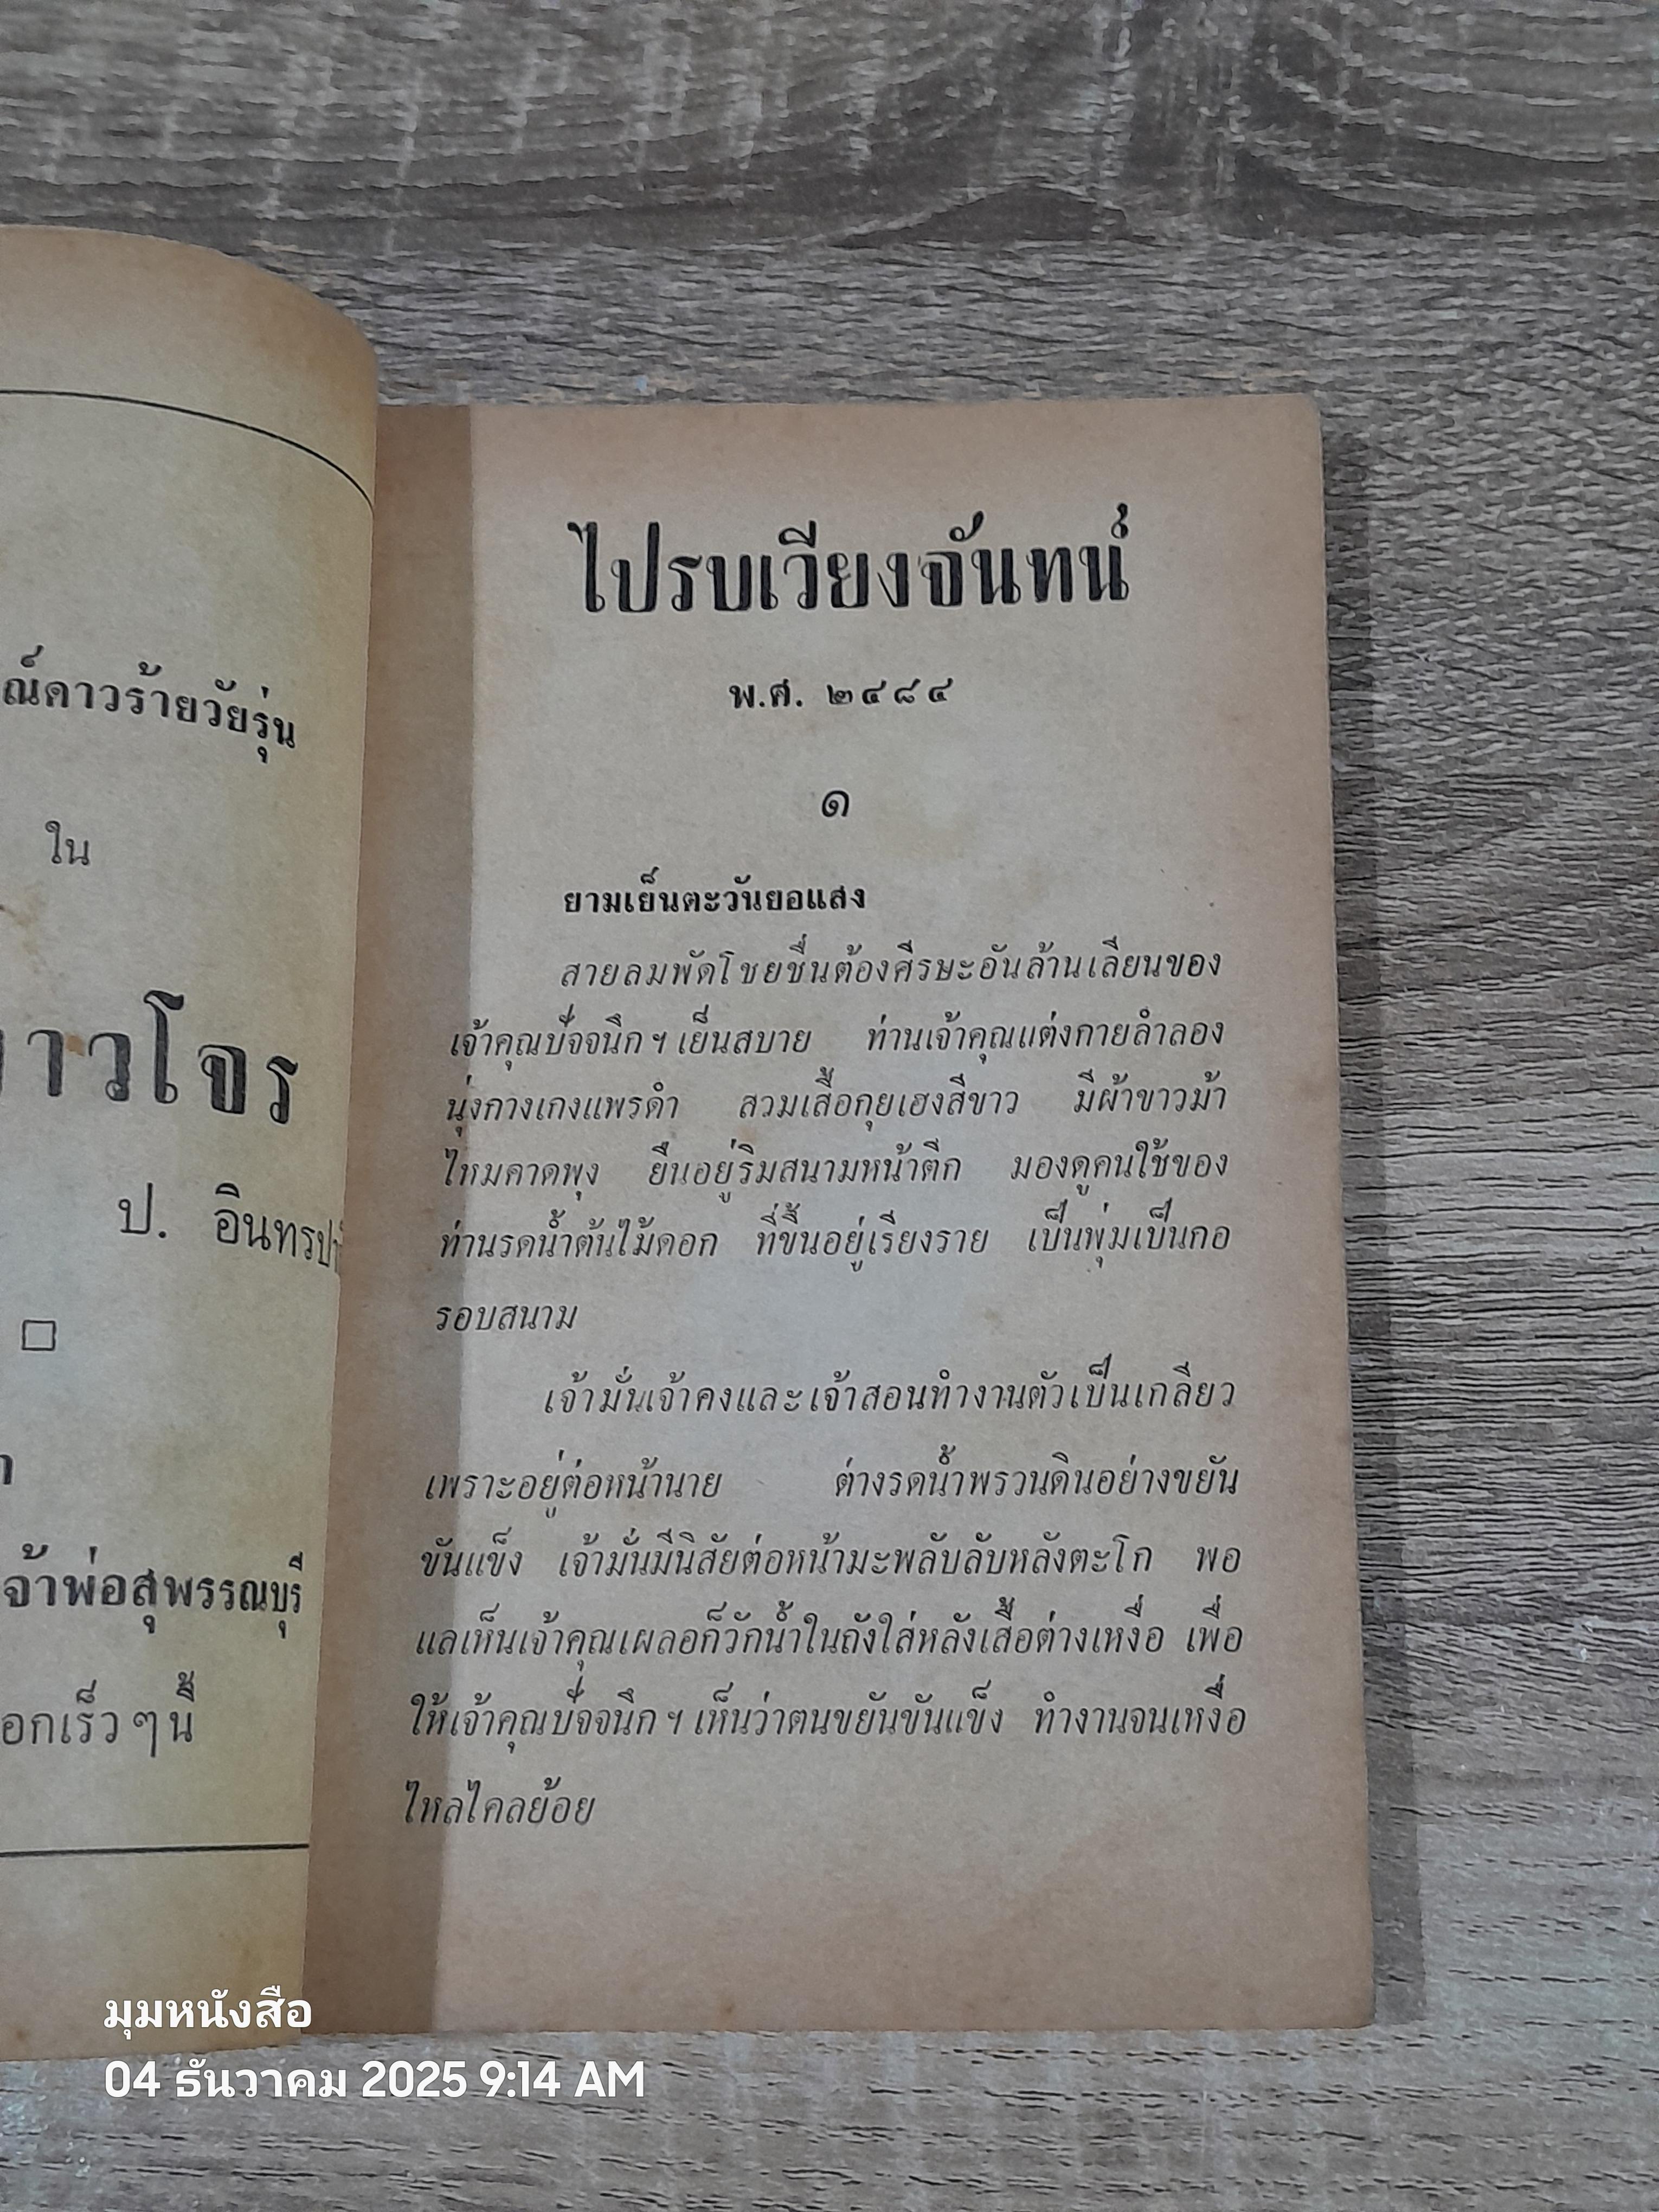 ดาวร้ายวัยรุ่น
ใน
ป. อินทร
จ้าพ่อสุพรรณบุรี
อกเร็วๆนี้
ไปรบเวียงจันทน์
พ.ศ. ๒๔๘๔
๑
ยามเย็นตะวันยอแสง
สายลมพัดโชยชื่นต้องศีรษะอันล้านเลียนของ
เจ้าคุณปัจจนึกฯ เย็นสบาย ท่านเจ้าคุณแต่งกายลำลอง
นุ่งกางเกงแพรดำ สวมเสื้อกุยเฮงสีขาว มีผ้าขาวม้า
ไหมคาดพุง ยืนอยู่ริมสนามหน้าตึก มองดูคนใช้ของ
ท่านรดน้ำต้นไม้ดอก ที่ขึ้นอยู่เรียงราย เป็นพุ่มเป็นกอ
รอบสนาม
เจ้ามั่นเจ้าคงและเจ้าสอนทำงานตัวเป็นเกลียว
เพราะอยู่ต่อหน้านาย ต่างรดน้ำพรวนดินอย่างขยัน
ขันแข็ง เจ้ามั่นมีนิสัยต่อหน้ามะพลับลับหลังตะโก พอ
แลเห็นเจ้าคุณเผลอก็วักน้ำในถังใส่หลังเสื้อต่างเหงื่อ เพื่อ
ให้เจ้าคุณปัจจนึกฯ เห็นว่าตนขยันขันแข็ง ทำงานจนเหงื่อ
ไหลไคลย้อย
มุมหนังสือ
04 ธันวาคม 2025 9:14 AM